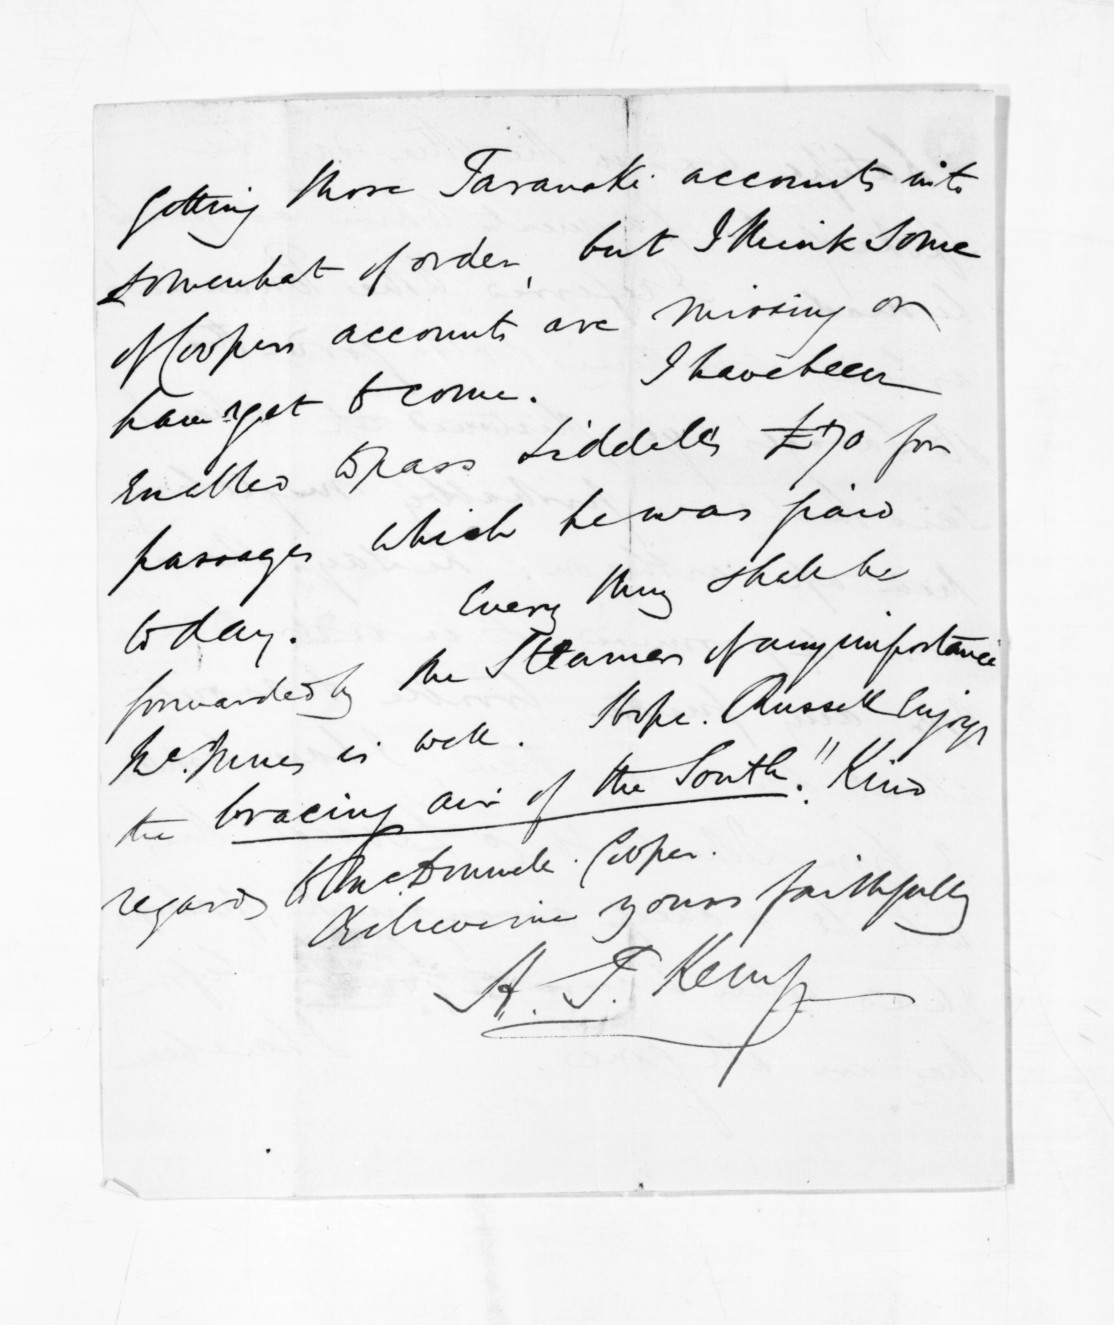 getting those Taranaki accounts into
somewhat of order, but I think some
of Coopers accounts are missing or
have yet to come. I have been
enabled to pass Liddells £70 for
passages which he was paid
today. Every thing shall be
forwarded by the Steamer of any importance
is well. Hope. Russell enjoys
the bracing air of the South." Kind
regards to Cooper.
Believe me yours faithfully
H. T. Kemp